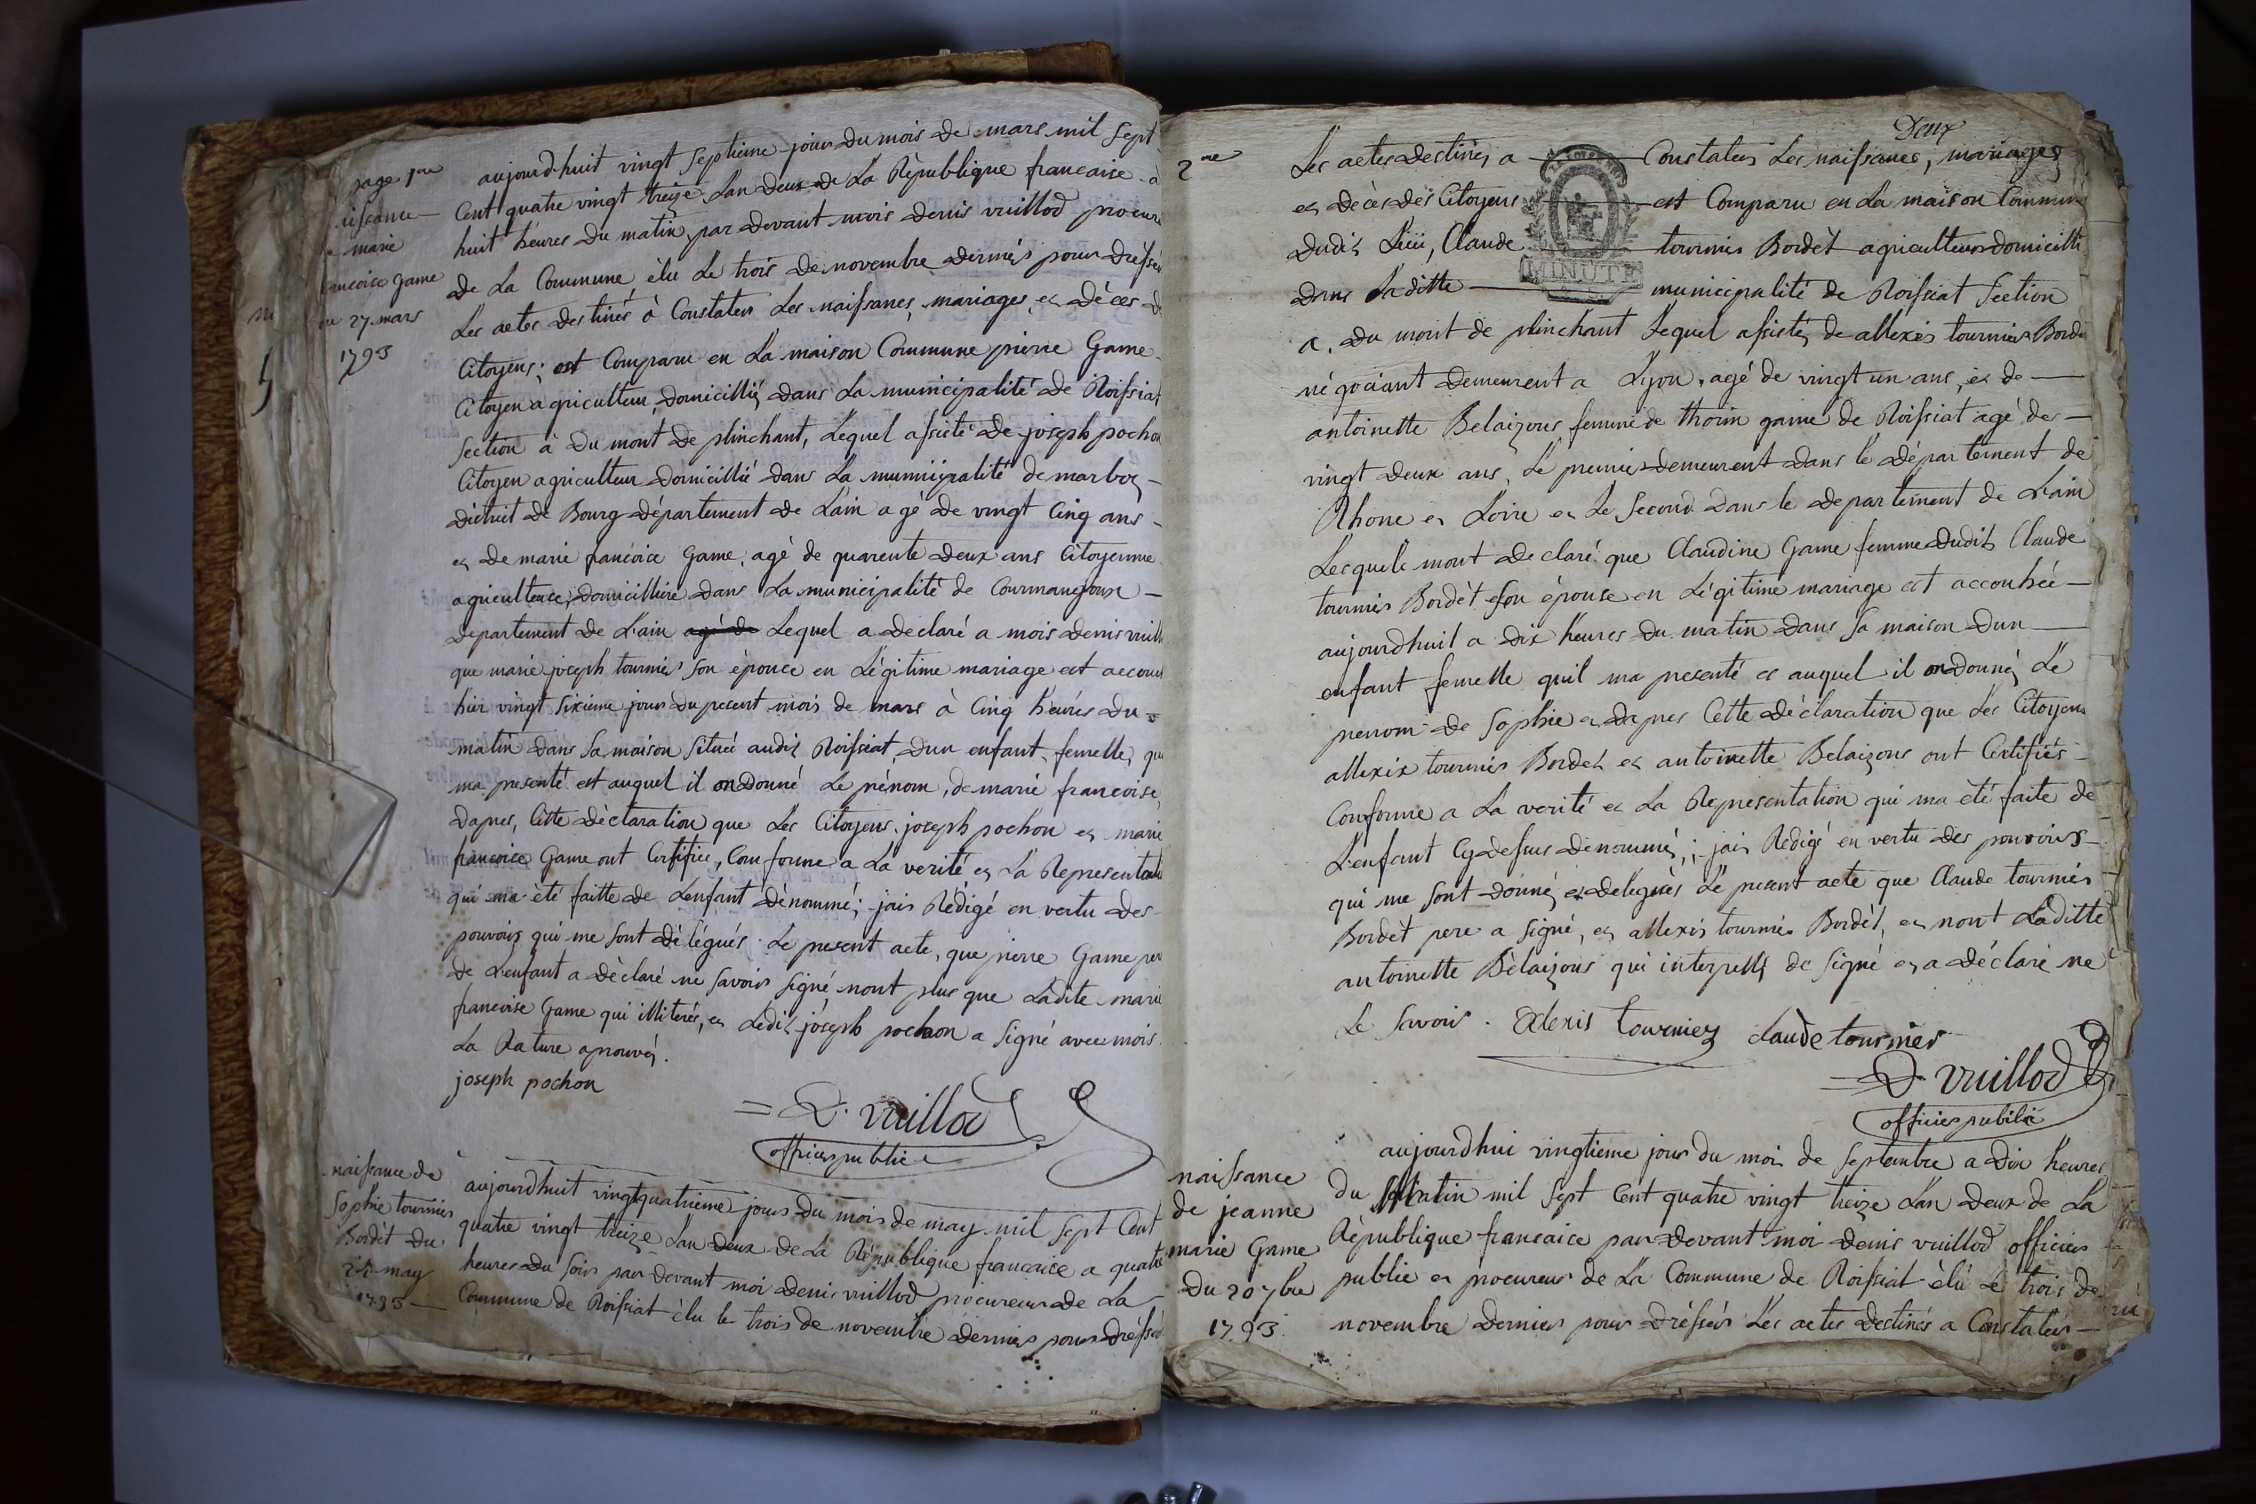 page 1ere
issance
e marie
ancoise Game
du 27 mars
1793
aujourd-huit vingt septieme jour du mois de mars mil sept
Cent quatre vingt treize L'an deux de La République francaise à
huit heures du matin, par devant mois denis vuillod procure
de La Commune, èlu Le trois de novembre dernier pour dréssé
Les actes destinés à Constater Les naissances, mariages, et dèces d
Citoyens; est Comparu en La maison Commune pierre Game
Citoyen agriculteur, domicillié, dans La municipalité de Roissiat
Section à du mont de plinchant, Lequel assisté de joseph pochon
Citoyen agriculteur domicillié dans La municipalité de marboz
district de Bourg département de L'ain agé de vingt Cinq ans
et de marie francoise Game, agé de quarente deux ans Citoyenne
agriculteuse, domicilliére dans La municipalité de Courmangoux
departement de L'ain agé de Lequel a declaré a mois denis vuill
que marie joseph tournier son épouse en Légitime mariage est accouc
hier vingt sixieme jour du present mois de mars à Cinq heures du
matin dans sa maison située audit Roissiat, dun enfant femelle, qu
ma presenté est auquel il on donné Le prénom, de marie francoise,
dapres, Cette déclaration que Les Citoyens joseph pochon et marie
francoise Game ont Certifiée, Conforme a La verité et La Representati
qui ma été faitte de Lenfant dénommé; jais Rédigé en vertu des
pouvoirs qui me sont délégués Le present acte, que pierre Game per
de Lenfant a déclaré ne savoir signé nont plus que Ladite marie
francoise Game qui illiterés, et Ledit joseph pochon a signé avec mois.
La Rature aprouvés.
joseph pochon
= D. vuillod
officier public
naissance de
Sophie tournier
Bordèt du
24 may
1793
aujourdhuit vingtquatrieme jours du mois de may mil sept Cent
quatre vingt treize L'an deux de La République francaise a quatre
heures du soir par devant moi denis vuillod procureur de La
Commune de Roissiat èlu le trois de novembre dernier pour dréssé
Deux
2me
Les actes destinés a Constater Les naissances, mariages
et dècès des Citoyens est Comparu en La maison Commune
dudit Lieu, Claude tournier Bordèt agriculteur domicillié
dans Laditte municipalité de Roissiat section
MINUTE
a. du mont de plinchant Lequel assisté, de allexis tournier Borde
négociant demeurent a Lyon, agé de vingt un ans, et de
antoinette Belaizons femme de thoin game de Roissiat agé de
vingt deux ans, Le premier demeurent dans le département de
Rhone et Loire et Le second dans le departement de L'ain
Lesquels mont declaré que Claudine Game femme dudit Claude
tournier Bordèt son épouse en Légitime mariage est accouhée
aujourdhuit a dix heures du matin dans sa maison dun
enfant femelle quil ma presenté et auquel il on donné, Le
prenom de Sophie et dapres Cette déclaration que Les Citoyens
allexix tournier Bordet et antoinette Belaizons ont Certifiés
Conforme a La verité et La Representation qui ma été faite de
L'enfant Cy dessus dénommé,; jais Rédigé en vertu des pouvoirs
qui me sont donné, et delegués Le present acte que Claude tournier
Bordèt pere a signé, et allexis tournier Bordèt, et nont Laditte
antoinette Bélaizons qui interpellé de signé et a déclaré ne
Le savoir. Alexis Tournier claude tournier
= D. vuillod
officier public
naissance
de jeanne
marie Game
du 20 7bre
1793.
aujourdhui vingtieme jour du mois de Septembre a dix heures
du Matin mil sept Cent quatre vingt treize L'an deux de La
République francaise par devant moi denis vuillod officier
public et procureur de La Commune de Roissiat èlu Le trois de
novembre dernier pour dréssér Les actes destinés a Constater